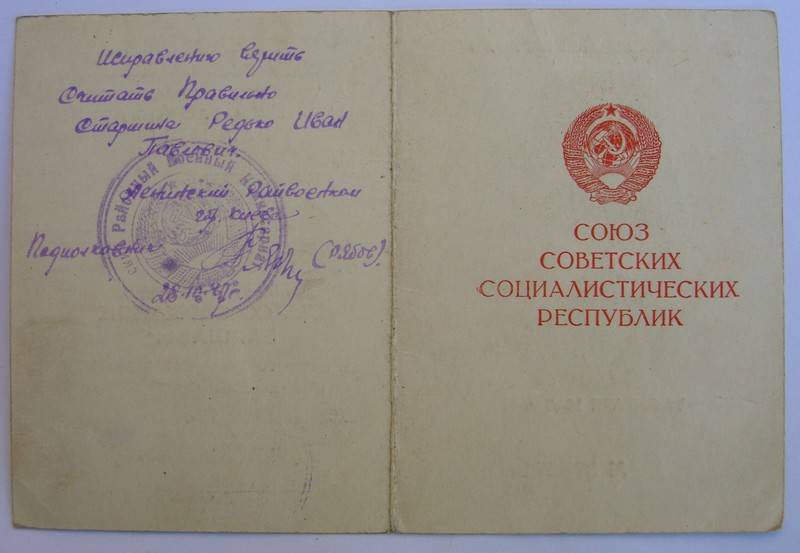 Исправленно верить
Считать Правильно
Старшина Редько Иван
Павлович.
Ленинский Райвоенком
г. Киева
Подполковник (Рябов).
28.10.47г.
Районный Военный Комиссариат
СОЮЗ
СОВЕТСКИХ
СОЦИАЛИСТИЧЕСКИХ
РЕСПУБЛИК